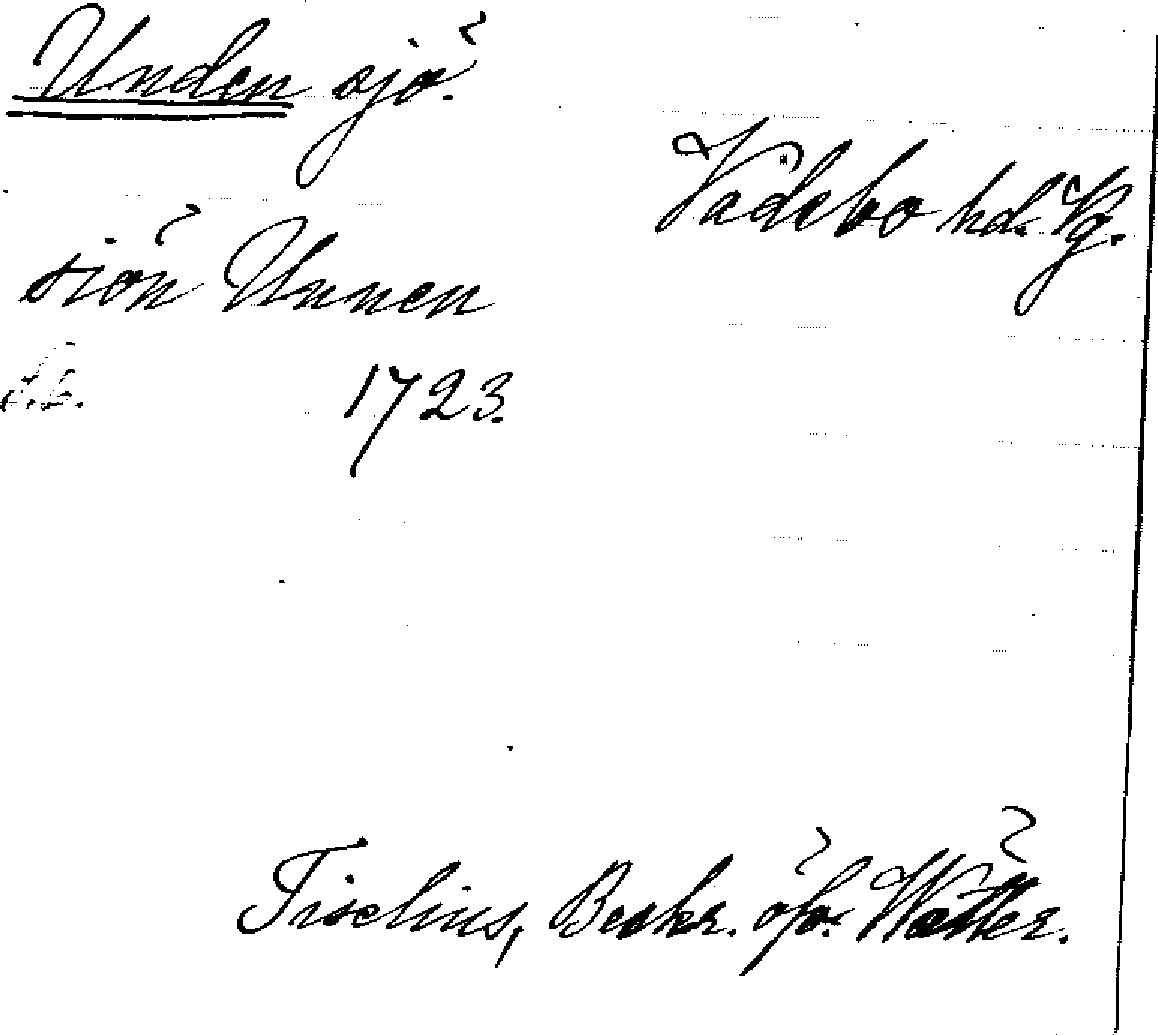 Unden sjö.
Vadsbo hd. Vg.
siön Unnen
s.6. 1723.
Tiselius, Beskr. öfv. Wätter.